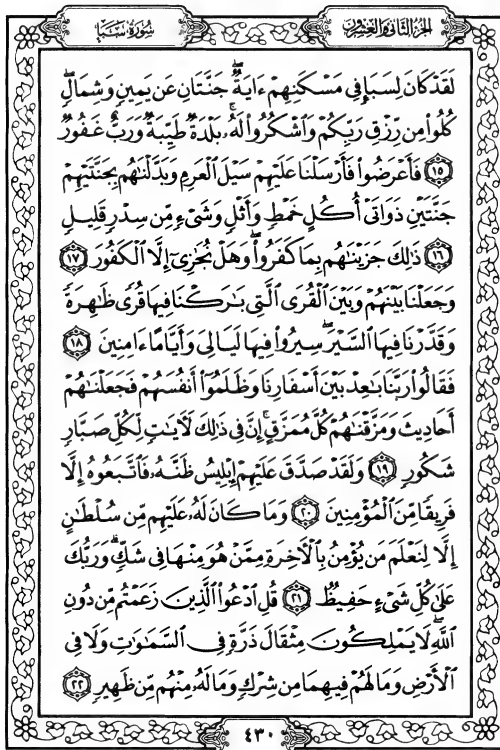 الجزء الثاني والعشرون
سورة سبإ
لَقَدْ كَانَ لِسَبَإٍ فِى مَسْكَنِهِمْ ءَايَةٌ ۖ جَنَّتَانِ عَن يَمِينٍ وَشِمَالٍ ۖ
كُلُوا۟ مِن رِّزْقِ رَبِّكُمْ وَٱشْكُرُوا۟ لَهُۥ ۚ بَلْدَةٌ طَيِّبَةٌ وَرَبٌّ غَفُورٌ
١٥ فَأَعْرَضُوا۟ فَأَرْسَلْنَا عَلَيْهِمْ سَيْلَ ٱلْعَرِمِ وَبَدَّلْنَٰهُم بِجَنَّتَيْهِمْ
جَنَّتَيْنِ ذَوَاتَىْ أُكُلٍ خَمْطٍ وَأَثْلٍ وَشَىْءٍ مِّن سِدْرٍ قَلِيلٍ
١٦ ذَٰلِكَ جَزَيْنَٰهُم بِمَا كَفَرُوا۟ ۖ وَهَلْ نُجَٰزِىٓ إِلَّا ٱلْكَفُورَ ١٧
وَجَعَلْنَا بَيْنَهُمْ وَبَيْنَ ٱلْقُرَى ٱلَّتِى بَٰرَكْنَا فِيهَا قُرًى ظَٰهِرَةً
وَقَدَّرْنَا فِيهَا ٱلسَّيْرَ ۖ سِيرُوا۟ فِيهَا لَيَالِىَ وَأَيَّامًا ءَامِنِينَ ١٨
فَقَالُوا۟ رَبَّنَا بَٰعِدْ بَيْنَ أَسْفَارِنَا وَظَلَمُوٓا۟ أَنفُسَهُمْ فَجَعَلْنَٰهُمْ
أَحَادِيثَ وَمَزَّقْنَٰهُمْ كُلَّ مُمَزَّقٍ ۚ إِنَّ فِى ذَٰلِكَ لَءَايَٰتٍ لِّكُلِّ صَبَّارٍ
شَكُورٍ ١٩ وَلَقَدْ صَدَّقَ عَلَيْهِمْ إِبْلِيسُ ظَنَّهُۥ فَٱتَّبَعُوهُ إِلَّا
فَرِيقًا مِّنَ ٱلْمُؤْمِنِينَ ٢٠ وَمَا كَانَ لَهُۥ عَلَيْهِم مِّن سُلْطَٰنٍ
إِلَّا لِنَعْلَمَ مَن يُؤْمِنُ بِٱلْءَاخِرَةِ مِمَّنْ هُوَ مِنْهَا فِى شَكٍّ ۗ وَرَبُّكَ
عَلَىٰ كُلِّ شَىْءٍ حَفِيظٌ ٢١ قُلِ ٱدْعُوا۟ ٱلَّذِينَ زَعَمْتُم مِّن دُونِ
ٱللَّهِ ۖ لَا يَمْلِكُونَ مِثْقَالَ ذَرَّةٍ فِى ٱلسَّمَٰوَٰتِ وَلَا فِى
ٱلْأَرْضِ وَمَا لَهُمْ فِيهِمَا مِن شِرْكٍ وَمَا لَهُۥ مِنْهُم مِّن ظَهِيرٍ ٢٢
٤٣٠